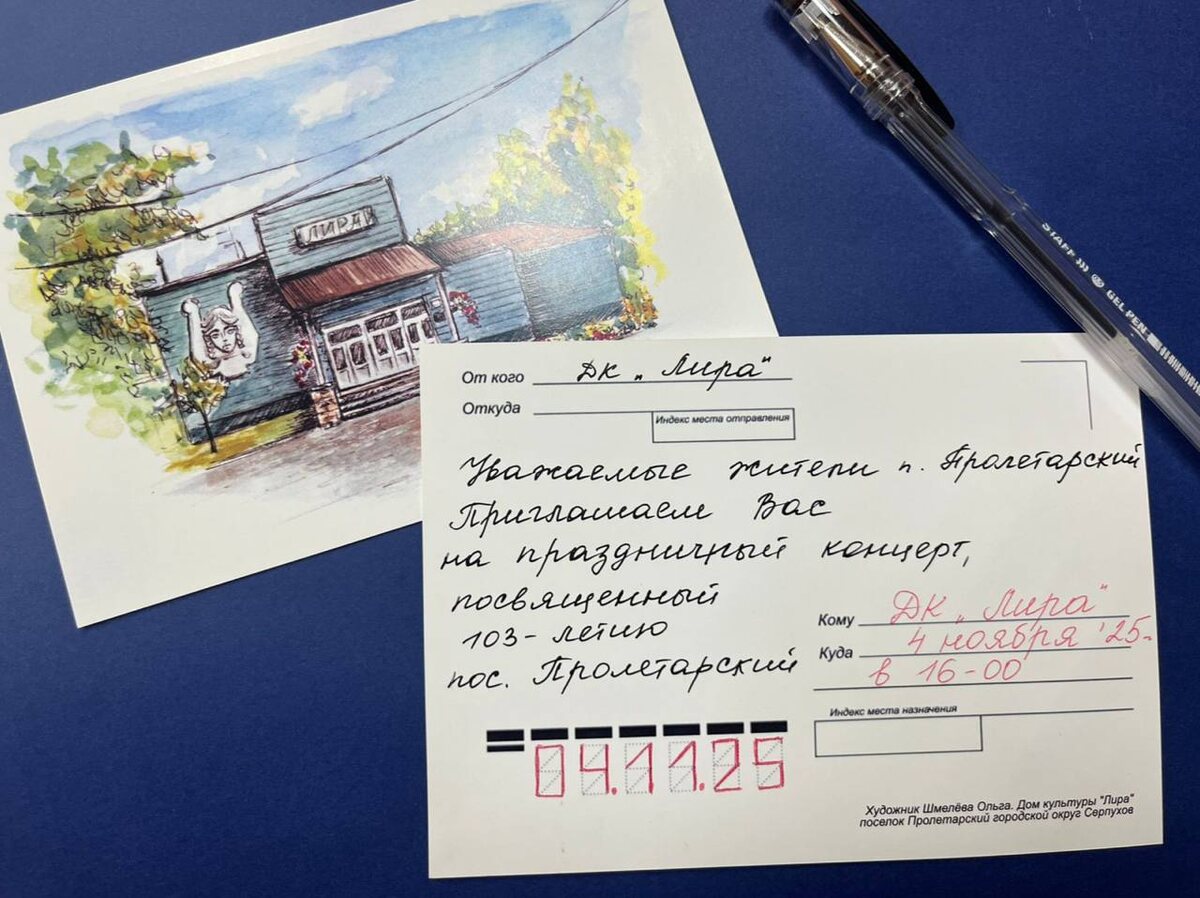 ЛИРА
STAFF GEL PEN
От кого ДК „Лира"
Откуда
Индекс места отправления
Уважаемые жители п. Пролетарский
Приглашаем Вас
на праздничный концерт,
посвященный
103-летию
пос. Пролетарский
Кому ДК „Лира"
Куда 4 ноября '25-
в 16-00
Индекс места назначения
04.11.25
Художник Шмелёва Ольга. Дом культуры "Лира"
поселок Пролетарский городской округ Серпухов